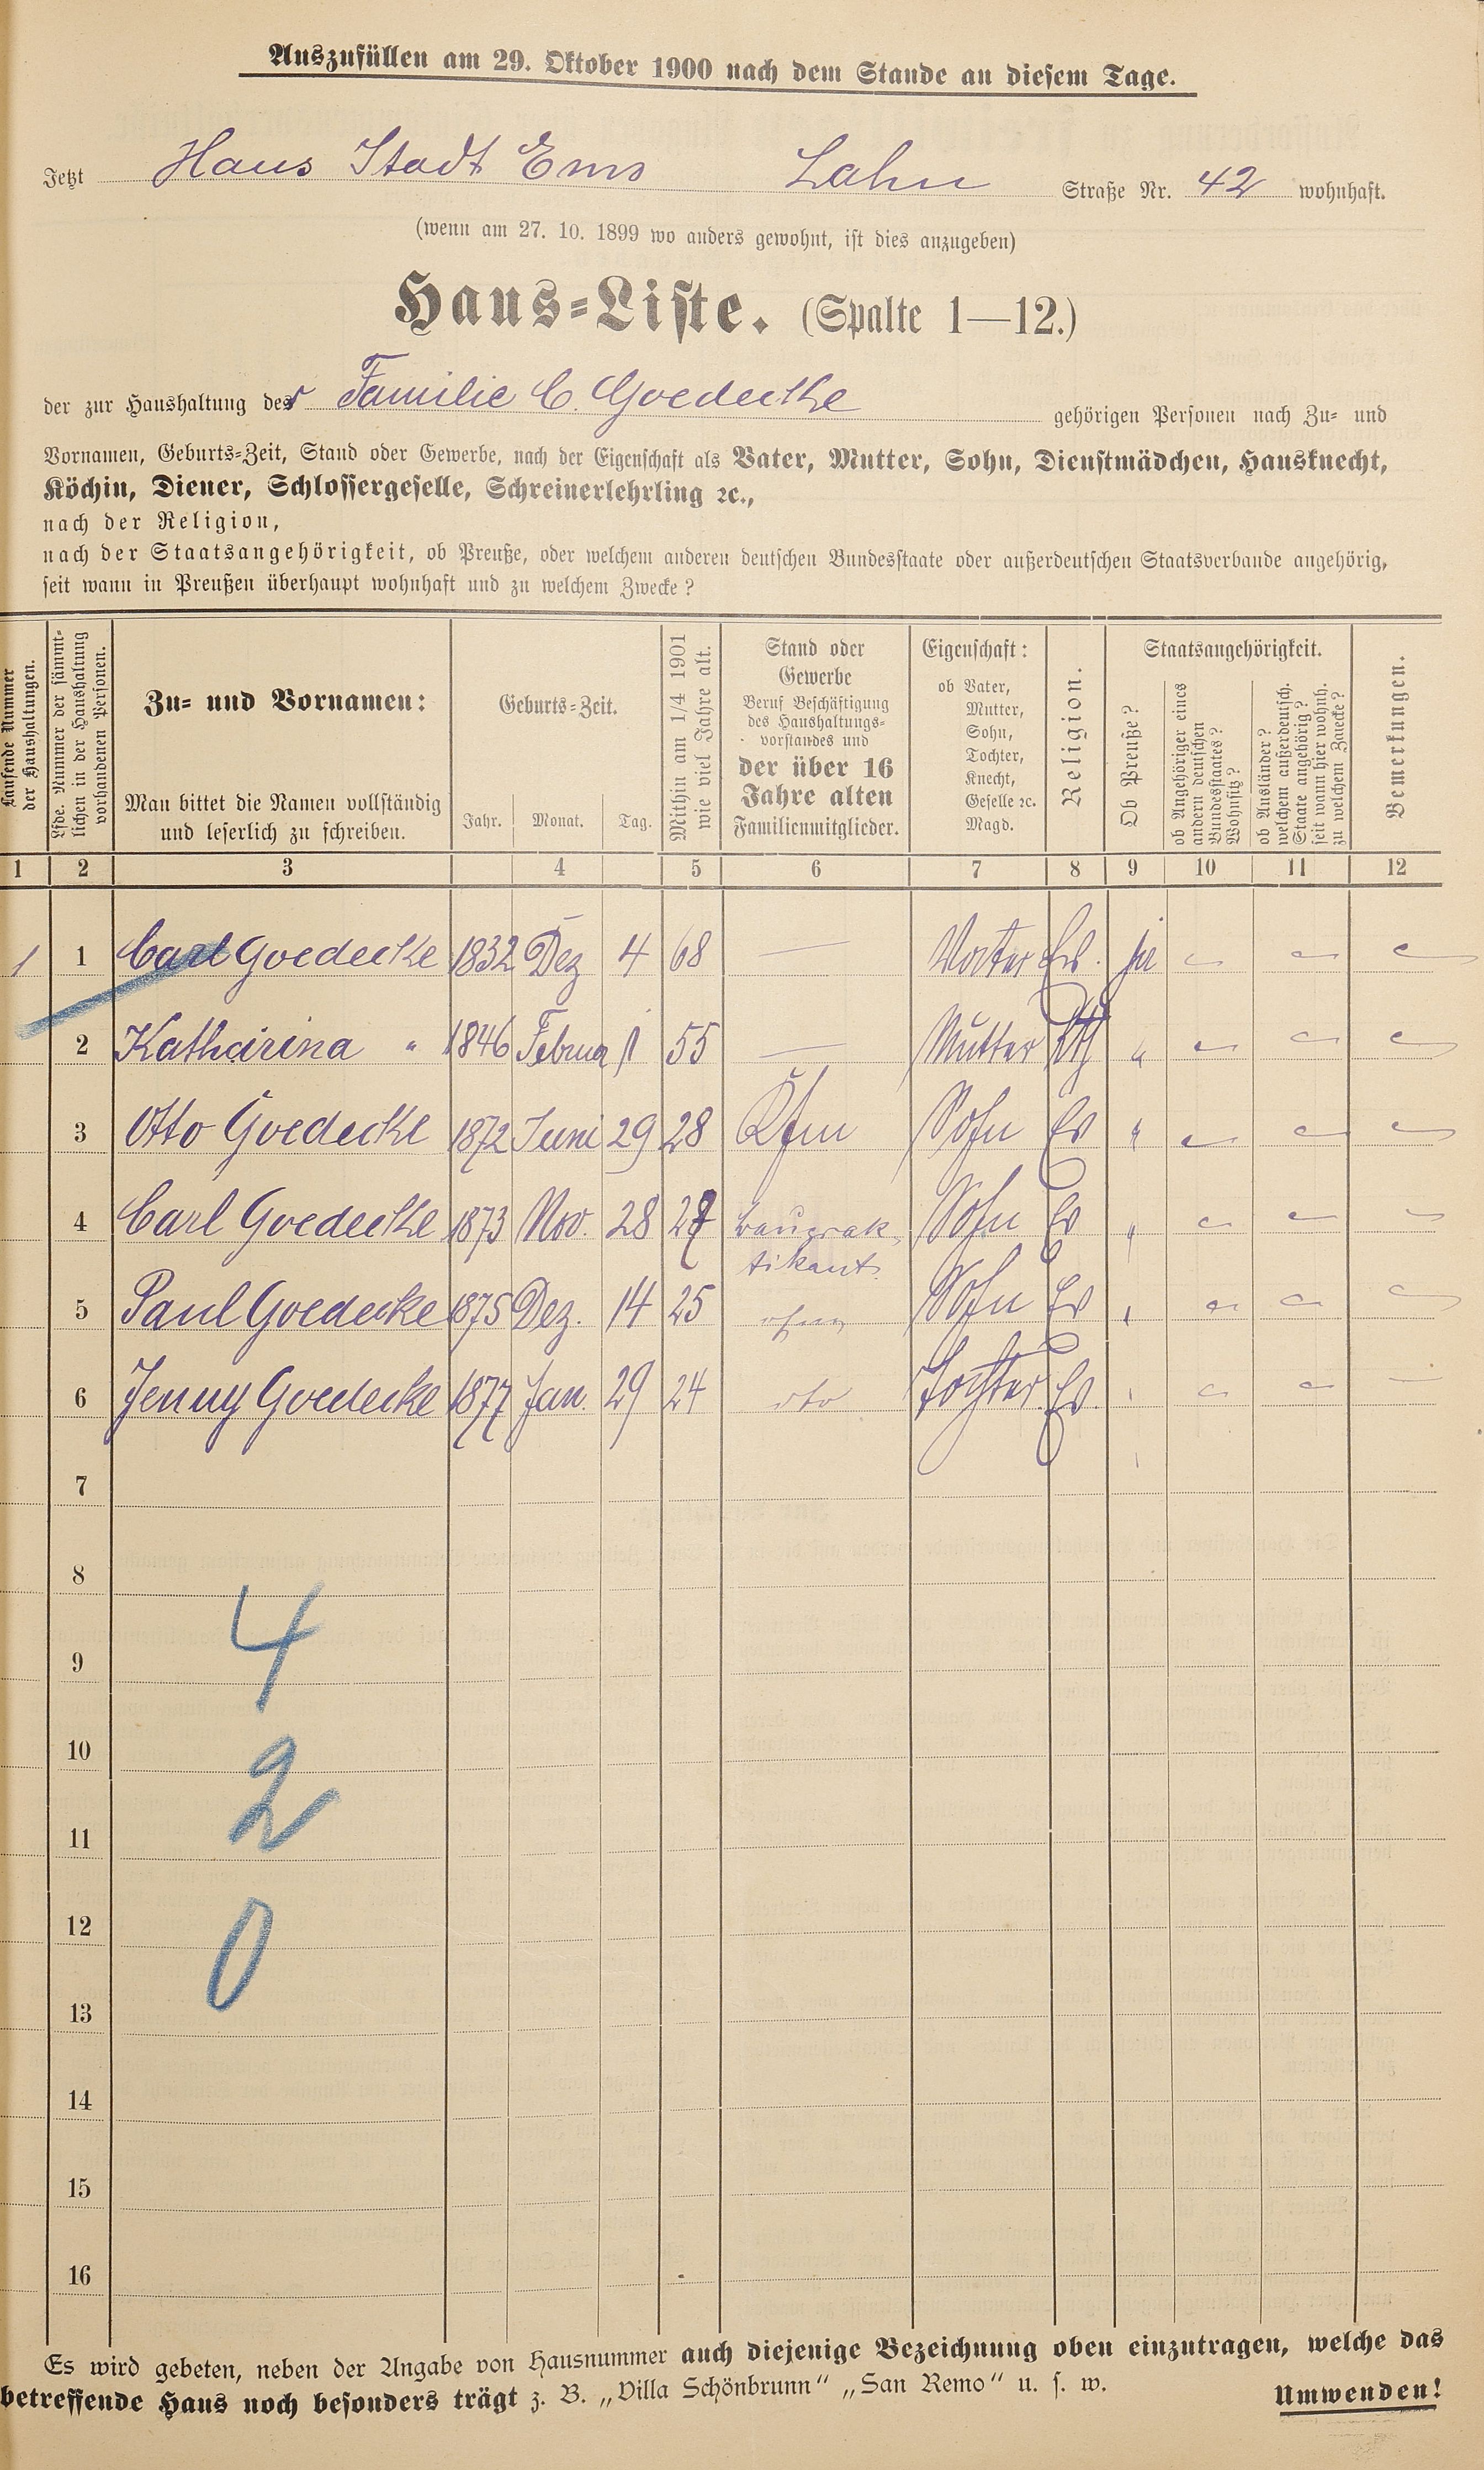 Auszufüllen am 29. Oktober 1900 nach dem Stande an diesem Tage.
Jetzt Haus Stadt Ems Lahn Straße Nr. 42 wohnhaft.
(wenn am 27. 10. 1899 wo anders gewohnt, ist dies anzugeben)
Haus=Liste. (Spalte 1—12.)
der zur Haushaltung der Familie C. Goedecke gehörigen Personen nach Zu= und
Vornamen, Geburts=Zeit, Stand oder Gewerbe, nach der Eigenschaft als Vater, Mutter, Sohn, Dienstmädchen, Hausknecht,
Köchin, Diener, Schlossergeselle, Schreinerlehrling ꝛc.,
nach der Religion,
nach der Staatsangehörigkeit, ob Preuße, oder welchem anderen deutschen Bundesstaate oder außerdeutschen Staatsverbande angehörig,
seit wann in Preußen überhaupt wohnhaft und zu welchem Zwecke?
Laufende Nummer
der Haushaltungen.
Lfde. Nummer der sämmt=
lichen in der Haushaltung
vorhandenen Personen.
Zu= und Vornamen:
Man bittet die Namen vollständig
und leserlich zu schreiben.
Geburts=Zeit.
Jahr. Monat. Tag.
Mithin am 1/4 1901
wie viel Jahre alt.
Stand oder
Gewerbe
Beruf Beschäftigung
des Haushaltungs=
vorstandes und
der über 16
Jahre alten
Familienmitglieder.
Eigenschaft:
ob Vater,
Mutter,
Sohn,
Tochter,
Knecht,
Geselle ꝛc.
Magd.
Religion.
Staatsangehörigkeit.
Ob Preuße?
ob Angehöriger eines
andern deutschen
Bundesstaates?
Wohnsitz?
ob Ausländer?
welchem außerdeutsch.
Staate angehörig?
seit wann hier wohnh.
zu welchem Zwecke?
Bemerkungen.
1 2 3 4 5 6 7 8 9 10 11 12
1 1 Carl Goedecke 1832 Dez 4 68 — Vater Ev. ja
2 Katharina " 1846 Februar 1 55 — Mutter Kth "
3 Otto Goedecke 1872 Juni 29 28 Kfm Sohn Ev "
4 Carl Goedecke 1873 Nov. 28 27 Bauprak- Sohn Ev "
tikant.
5 Paul Goedecke 1875 Dez. 14 25 ohne Sohn Ev "
6 Jenny Goedecke 1877 Jan. 29 24 dto Tochter Ev. "
7
8
4
9
10
2
11
12
0
13
14
15
16
Es wird gebeten, neben der Angabe von Hausnummer auch diejenige Bezeichnung oben einzutragen, welche das
betreffende Haus noch besonders trägt z. B. „Villa Schönbrunn“ „San Remo“ u. s. w.
Umwenden!